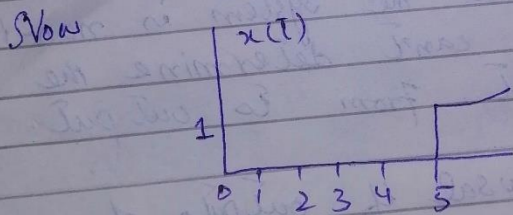 Now
x(T)
1
0 1 2 3 4 5